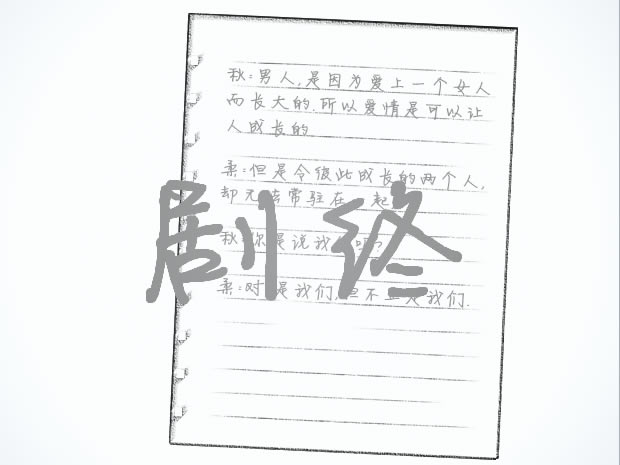 秋:男人,是因为爱上一个女人
而长大的.所以爱情是可以让
人成长的
柔:但是令彼此成长的两个人,
却无法常驻在一起
秋:你是说我们吗?
柔:对 是我们,但不止是我们.
剧终